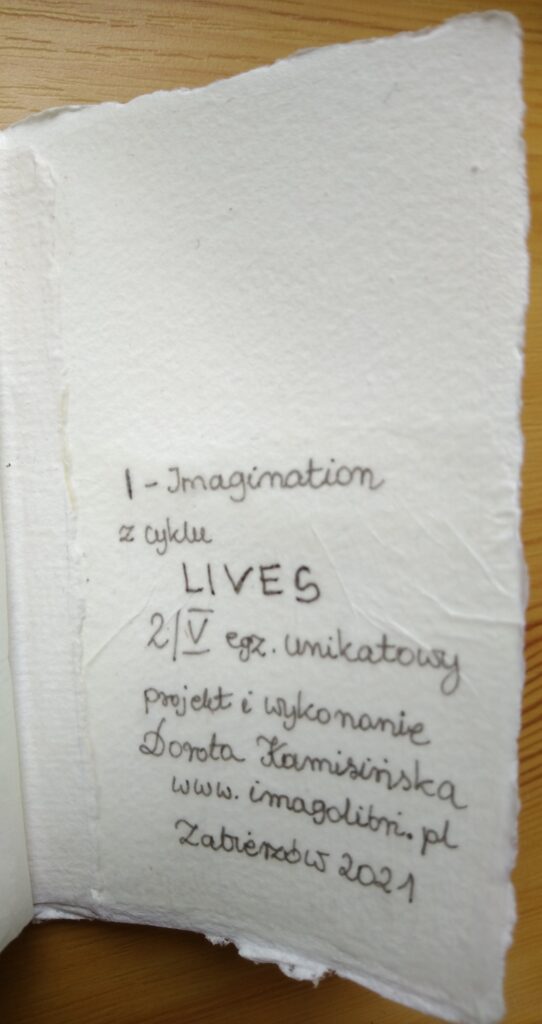 I - Imagination
z cyklu
LIVES
2/V egz. unikatowy
projekt i wykonanie
Dorota Kamisińska
www.imagolibri.pl
Zabierzów 2021